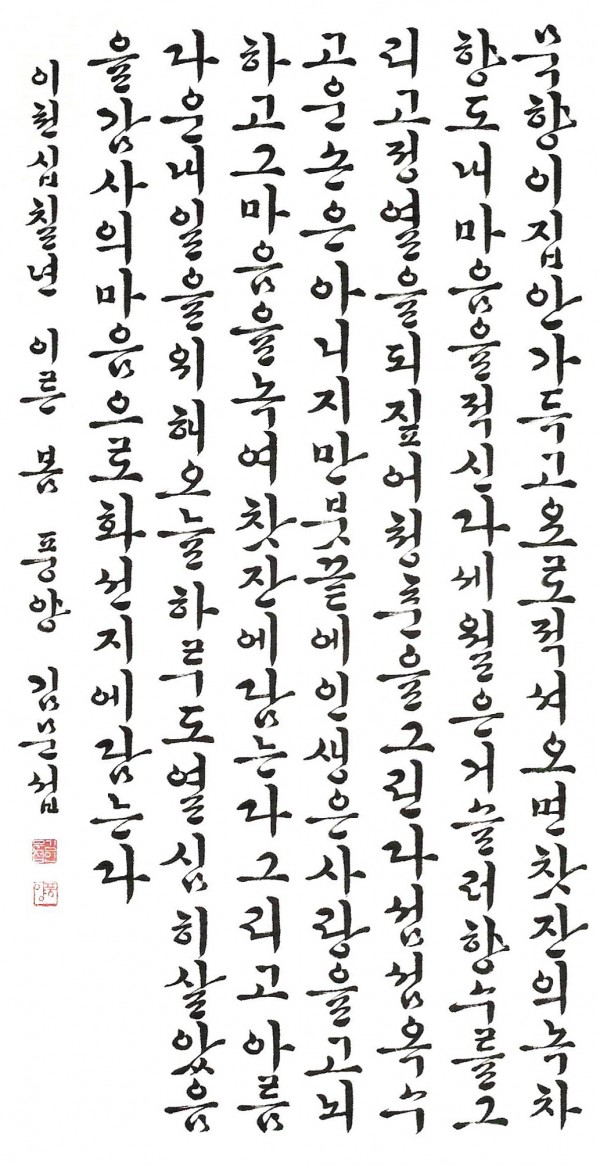 묵향이집안가득고요로적셔오면찻잔의녹차
향도내마음을적신다세월은거슬러향수를그
리고정열을되짚어청춘을그린다섬섬옥수
고운손은아니지만붓끝에인생은사랑을고뇌
하고그마음을녹여찻잔에담는다그리고아름
다운내일을위해오늘하루도열심히살았음
을감사의마음으로화선지에담는다
이천십칠년 이른 봄 풍양 김문섭